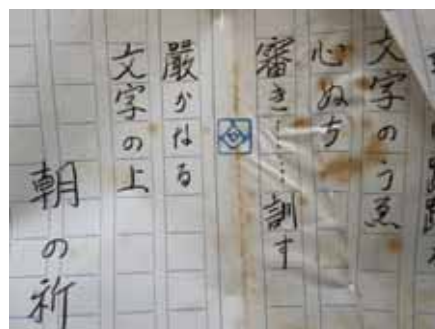 文字のうゑ
心ぬち
審き……訓す
嚴かなる
文字の上
朝の祈